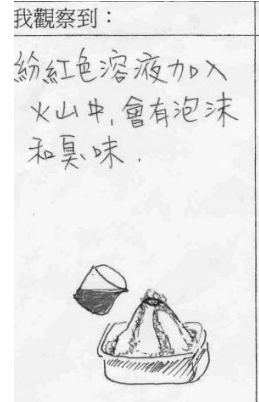 我觀察到：
紛紅色溶液加入
火山中,會有泡沫
和臭味.